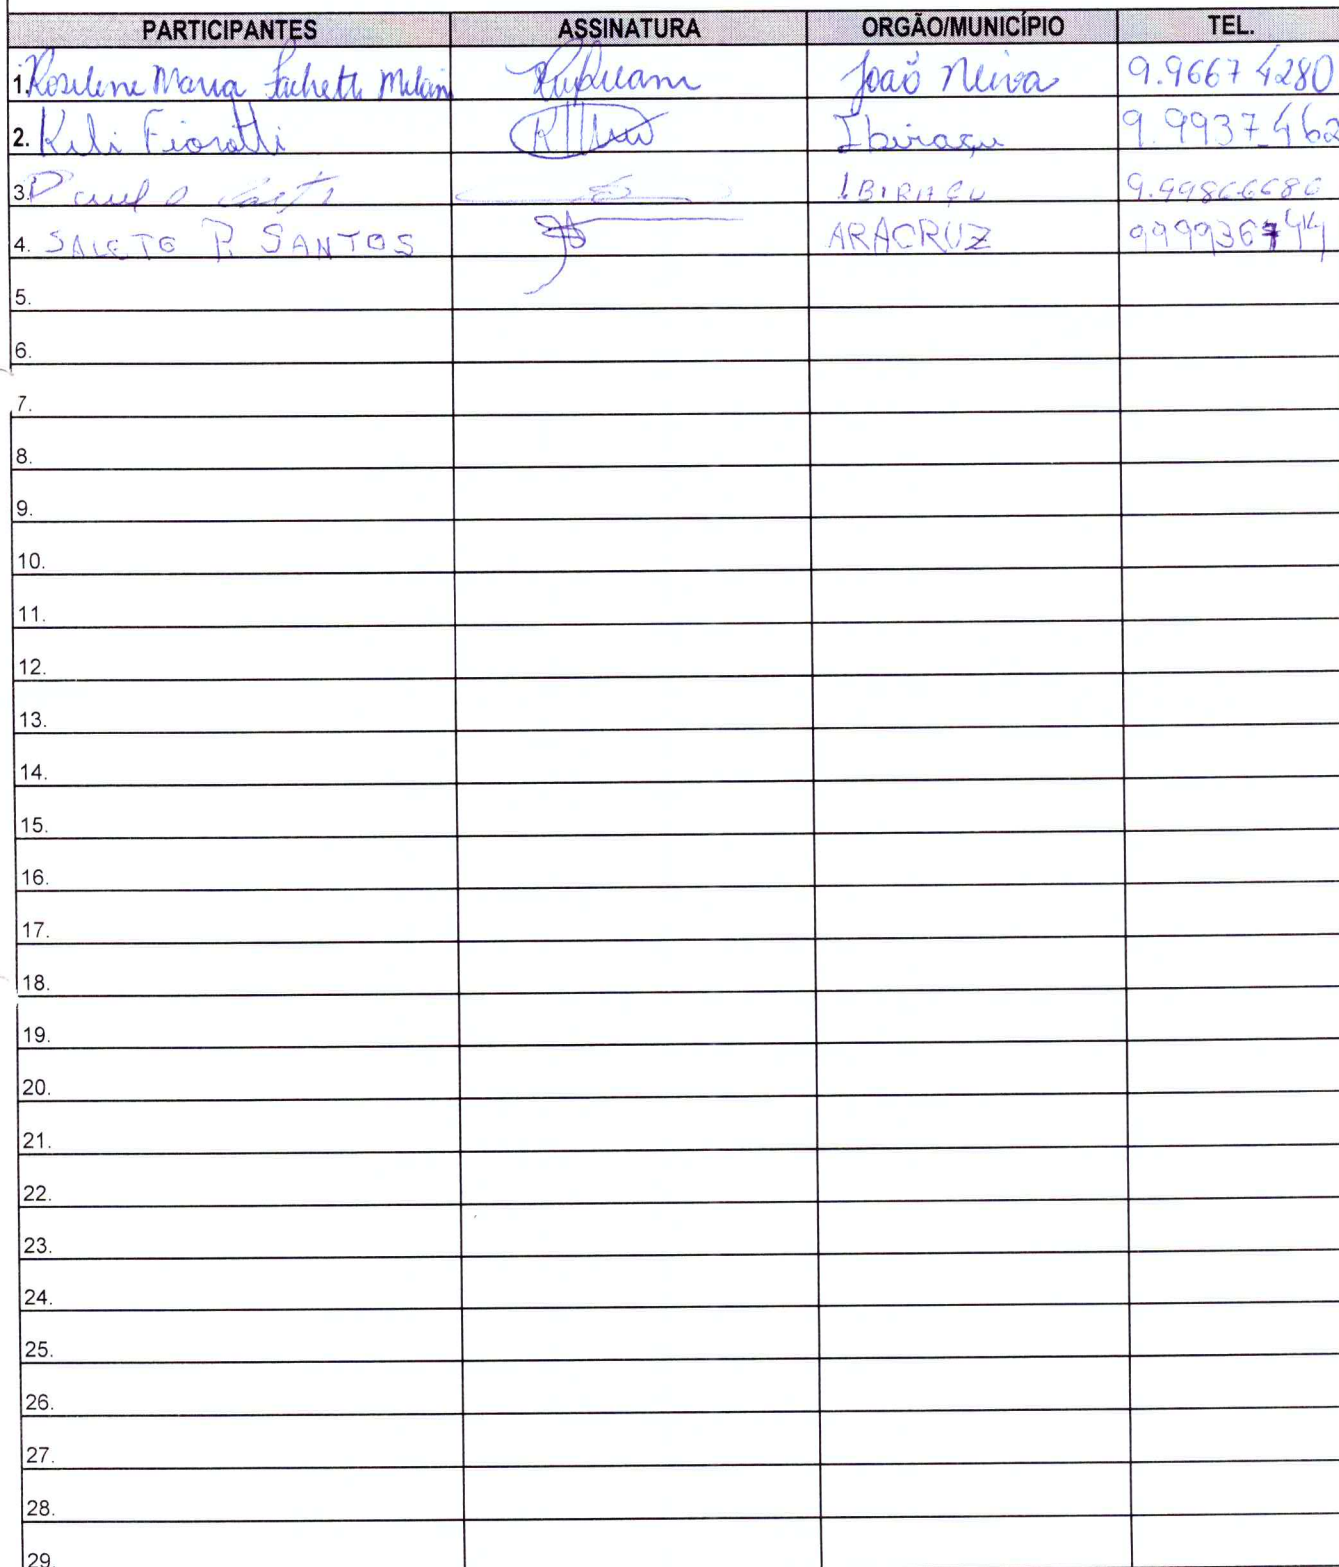 PARTICIPANTES ASSINATURA ORGÃO/MUNICÍPIO TEL.
1. Rosilene Maria Fachetti Milan João Neiva 9.9667 4280
2. Keli Fioratti Ibiraçu 9.9937 462
3. IBIRAÇU 9.99866686
4. SALETE P. SANTOS ARACRUZ 999936744
5.
6.
7.
8.
9.
10.
11.
12.
13.
14.
15.
16.
17.
18.
19.
20.
21.
22.
23.
24.
25.
26.
27.
28.
29.